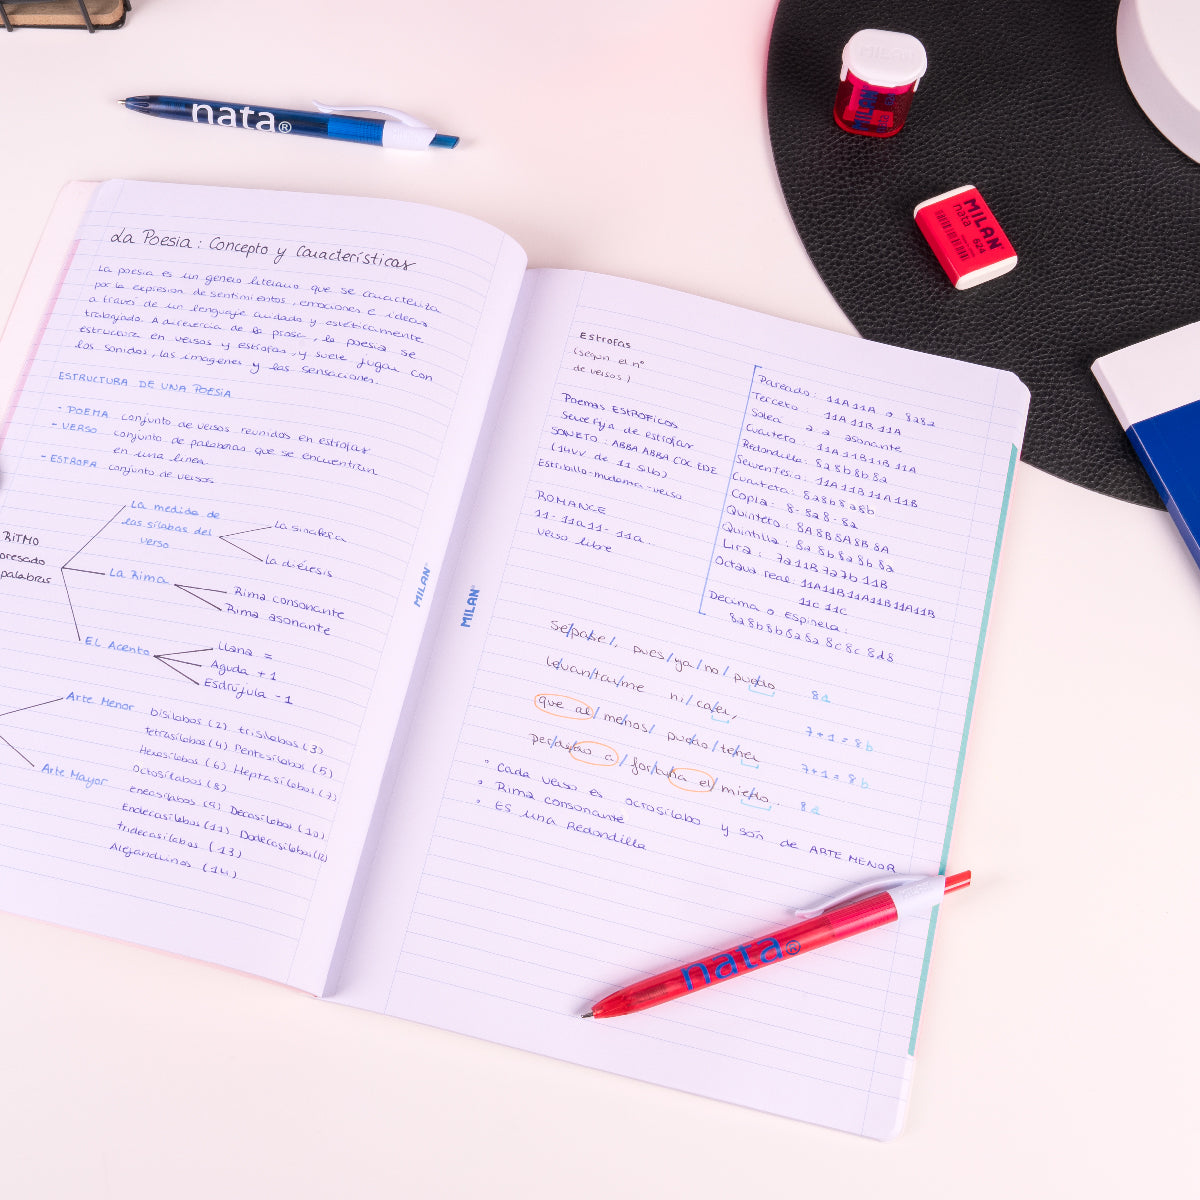 nata®
MILAN
MILAN
nata
624
La Poesia: Concepto y características
La poesia es un género literario que se caracteriza
por la expresion de sentimientos, emociones e ideas
a través de un lenguaje cuidado y estéticamente
trabajado. A diferencia de la prosa, la poesia se
estructura en versos y estrofas, y suele jugar con
los sonidos, las imagenes y las sensaciones.
ESTRUCTURA DE UNA POESIA
- POEMA conjunto de versos reunidos en estrofas
- VERSO conjunto de palabras que se encuentran
en una linea
- ESTROFA conjunto de versos
RITMO
presado
palabras
La medida de
las sílabas del
verso
La sinalefa
La diéresis
La Rima
Rima consonante
Rima asonante
EL Acento
Llana =
Aguda + 1
Esdrújula - 1
Arte Menor
bisílabos (2) trisílabos (3)
tetrasílabos (4) Pentasílabos (5)
Hexasílabos (6) Heptasílabos (7)
Octosílabos (8)
Arte Mayor
eneasílabos (9) Decasílabos (10)
Endecasílabos (11) Dodecasílabos (12)
tridecasílabos (13)
Alejandrinos (14)
MILAN®
MILAN®
Estrofas
(según el nº
de versos)
Poemas ESTROFICOS
de estrofas
SONETO: ABBA ABBA CDC EDE
(14VV de 11 silb)
Estribillo-mudanza-verso
ROMANCE
11- 11a 11- 11a..
verso libre
Pareado: 11A 11A o 8a8a
Terceto: 11A 11B 11A
Solea a a asonante
Cuarteto: 11A 11B 11B 11A
Redondilla: 8a 8b 8b 8a
Serventesio: 11A 11B 11A 11B
Cuarteta: 8a 8b 8a 8b
Copla: 8- 8a 8- 8a
Quinteto: 8A 8B 8A 8B 8A
Quintilla: 8a 8b 8a 8b 8a
Lira: 7a 11B 7a 7b 11B
Octava real: 11A 11B 11A 11B 11A 11B
11C 11C
Decima o Espinela:
8a 8b 8b 8a 8a 8c 8c 8d 8d
Se/pa/se/, pues/ya/no/puedo 8a
levan/tar/me ni/caer, 7+1=8b
que al/menos/ puedo/tener 7+1=8b
per/dido a/fortuna el/miedo. 8a
° Cada verso es octosílabo y son de ARTE MENOR
° Rima consonante
° ES una Redondilla
nata®